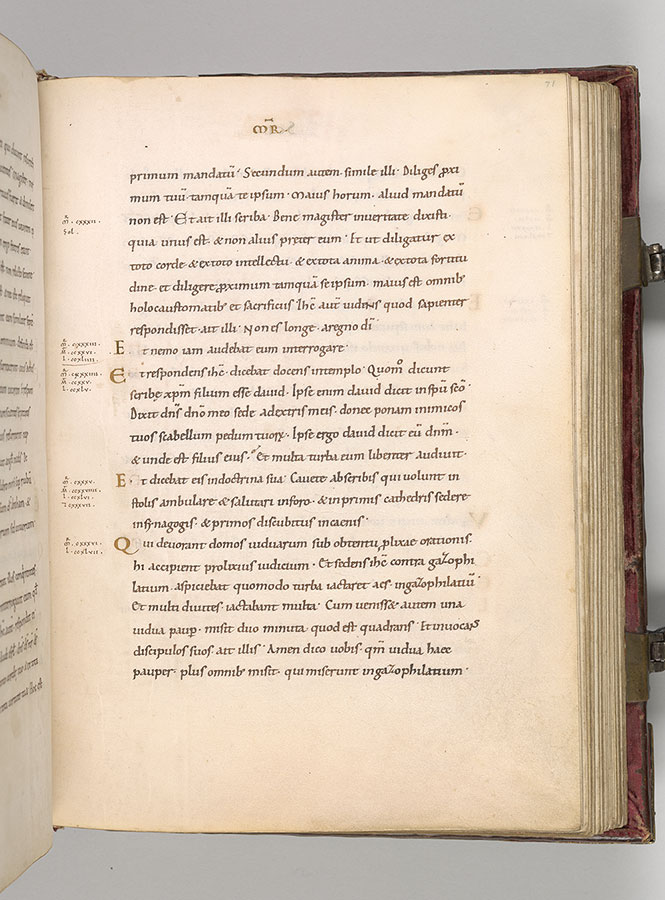 71
MR̄
primum mandatū · Secundum autem simile illi · Diliges ꝓxi
mum tuū tamquā te ipsum · Maius horum · aliud mandatū
non est · Et ait illi scriba · Bene magister inveritate dixisti
quia unus est · & non alius preter eum · Et ut diligatur ex
toto corde · & extoto intellectu · & extota anima · & extota fortitu
dine · et diligere ꝓximum tamquā seipsum · maius est omnib;
holocaustomatib; et sacrificiis · Ihc̄ aut̄ vidNs quod sapienter
respondisset · ait illi · Non es longe · aregno dī
Et nemo iam audebat eum interrogare ·
Et respondens ihc̄ · dicebat docens intemplo · Quom̊ dicunt
scribę xp̄m filium esse david · Ipse enim david dicit inspū scō ·
Dixit dn̄s dn̄o meo sede adextris meis · donec ponam inimicos
tuos scabellum pedum tuorꝝ · Ipse ergo david dicit eū dn̄m ·
& unde est filius eius · Et multa turba eum libenter audivit ·
Et dicebat eis indoctrina sua · Cavete abscribis qui volunt in
stolis ambulare · & salutari inforo · & inprimis cathedris sedere
insynagogis · & primos discubitus incaenis ·
Qui devorant domos viduarum sub obtentu ꝓlixae orationis ·
hi accipient prolixius iudicium · Et sedens ihc̄ contra gazophi
latium · aspiciebat quomodo turba iactaret aes · ingazophilatiū ·
Et multi divites · iactabant multa · Cum venisset autem una
vidua paup̄ · misit duo minuta · quod est quadrans · Et invocans
discipulos suos ait illis · Amen dico vobis · qm̄ vidua haec
pauper · plus omnib; misit · qui miserunt ingazophilatium ·
m̄ · cxxxii ·
Sol ·
m̄ · cxxxiii ·
m̄ · ccxxvi ·
l · ccxliiii ·
m̄ · cxxxiiii ·
m̄ · ccxxv ·
l · ccxlv ·
m̄ · cxxxv ·
l · ccxlvi ·
m̄ · cxxxvi ·
l · ccxlvii ·